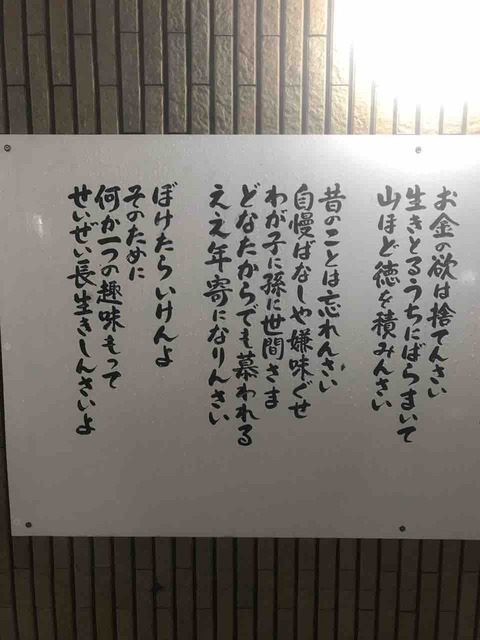 お金の欲は捨てんさい
生きとるうちにばらまいて
山ほど徳を積みんさい
昔のことは忘れんさい
自慢ばなしや嫌味ぐせ
わが子に孫に世間さま
どなたからでも慕われる
ええ年寄になりんさい
ぼけたらいけんよ
そのために
何か一つの趣味もって
せいぜい長生きしんさいよ